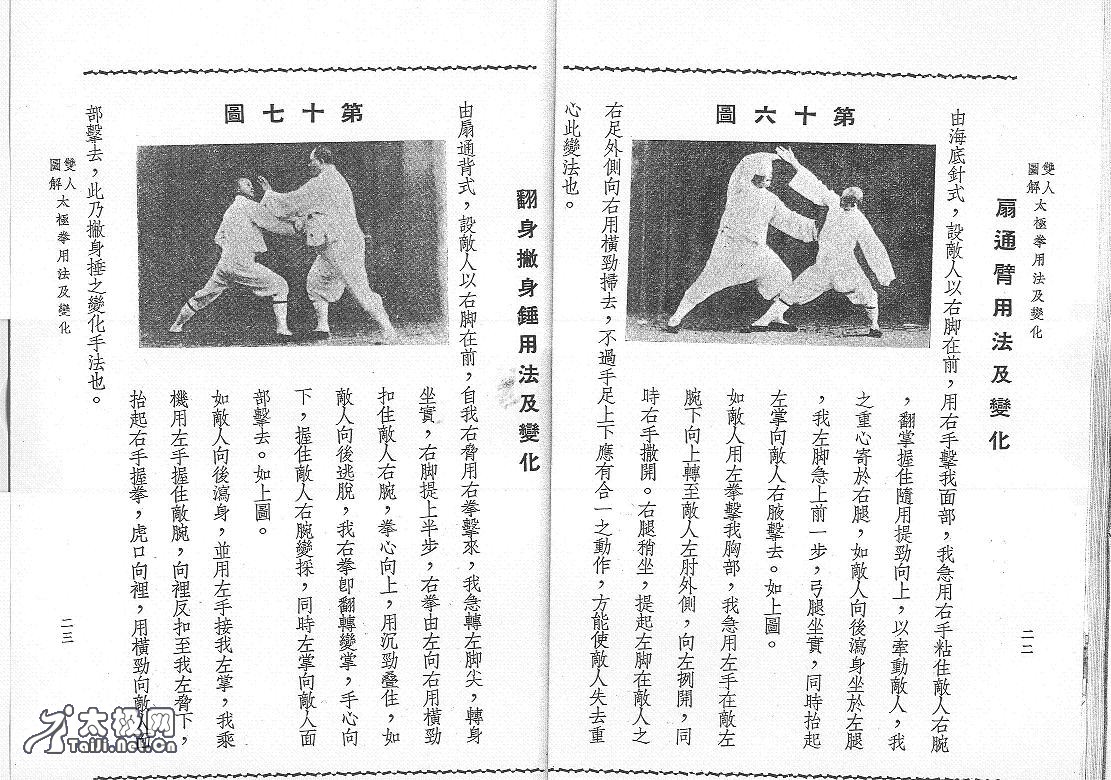 雙人圖解太極拳用法及變化
扇通臂用法及變化
第十六圖
由海底針式，設敵人以右脚在前，用右手擊我面部，我急用右手粘住敵人右腕
，翻掌握住隨用提勁向上，以牽動敵人，我
之重心寄於右腿，如敵人向後瀉身坐於左腿
，我左脚急上前一步，弓腿坐實，同時抬起
左掌向敵人右腋擊去。如上圖。
如敵人用左拳擊我胸部，我急用左手在敵左
腕下向上轉至敵人左肘外側，向左挒開，同
時右手撒開。右腿稍坐，提起左脚在敵人之
右足外側向右用橫勁掃去，不過手足上下應有合一之動作，方能使敵人失去重
心此變法也。
二二
翻身撇身錘用法及變化
第十七圖
由扇通背式，設敵人以右脚在前，自我右脅用右拳擊來，我急轉左脚尖，轉身
坐實，右脚提上半步，右拳由左向右用橫勁
扣住敵人右腕，拳心向上，用沉勁疊住，如
敵人向後逃脫，我右拳卽翻轉變掌，手心向
下，握住敵人右腕變採，同時左掌向敵人面
部擊去。如上圖。
如敵人向後瀉身，並用左手接我左掌，我乘
機用左手握住敵腕，向裡反扣至我左脅下，
抬起右手握拳，虎口向裡，用橫勁向敵人
部擊去，此乃撇身捶之變化手法也。
雙人圖解太極拳用法及變化
二三
太极网
Taiji.Net.Cn